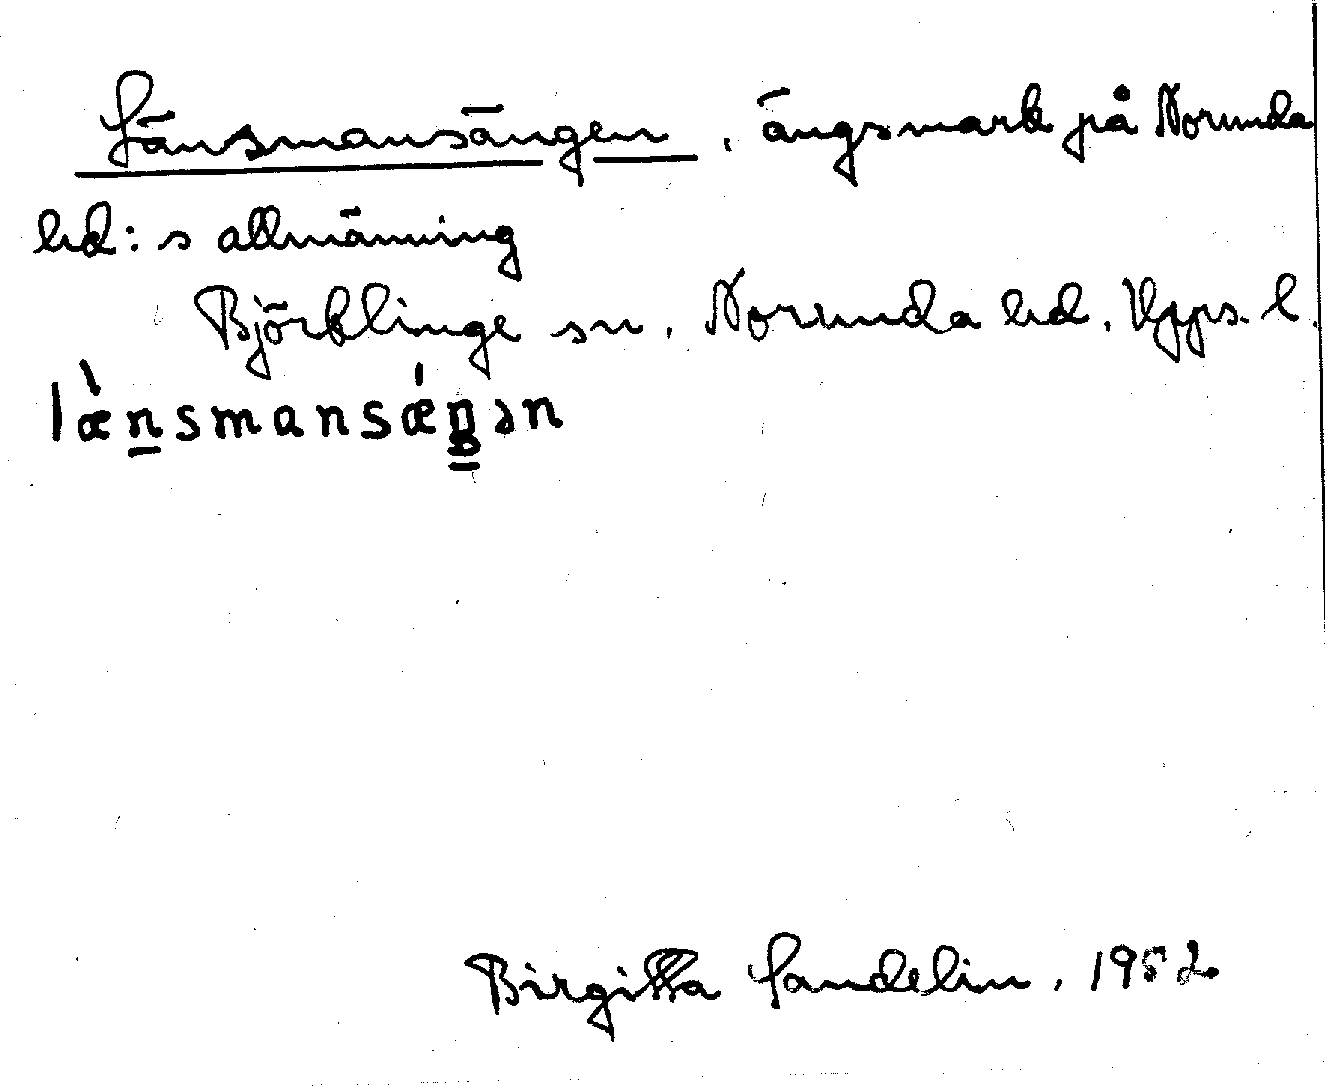 Länsmansängen, ängsmark på Norunda
hd:s allmänning
Björklinge sn, Norunda hd, Upps. l.
lǽ̀nsmansǽŋən
Birgitta Sandelin, 1952.